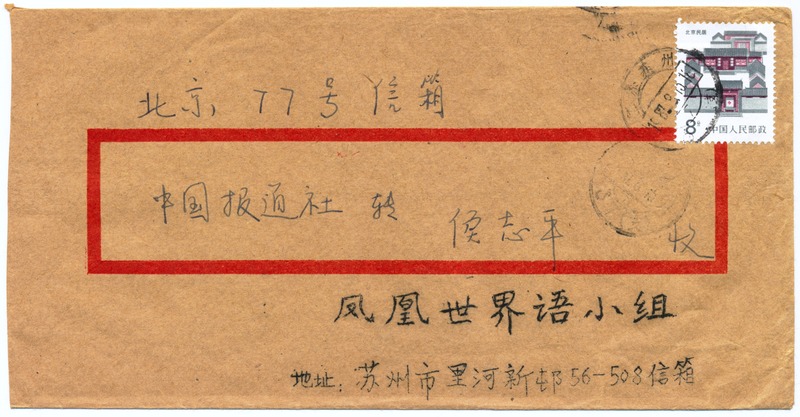 北京民居
8分 中国人民邮政
苏州
北京 77号信箱
中国报道社 转 侯志平 收
凤凰世界语小组
地址：苏州市里河新邨56-508信箱